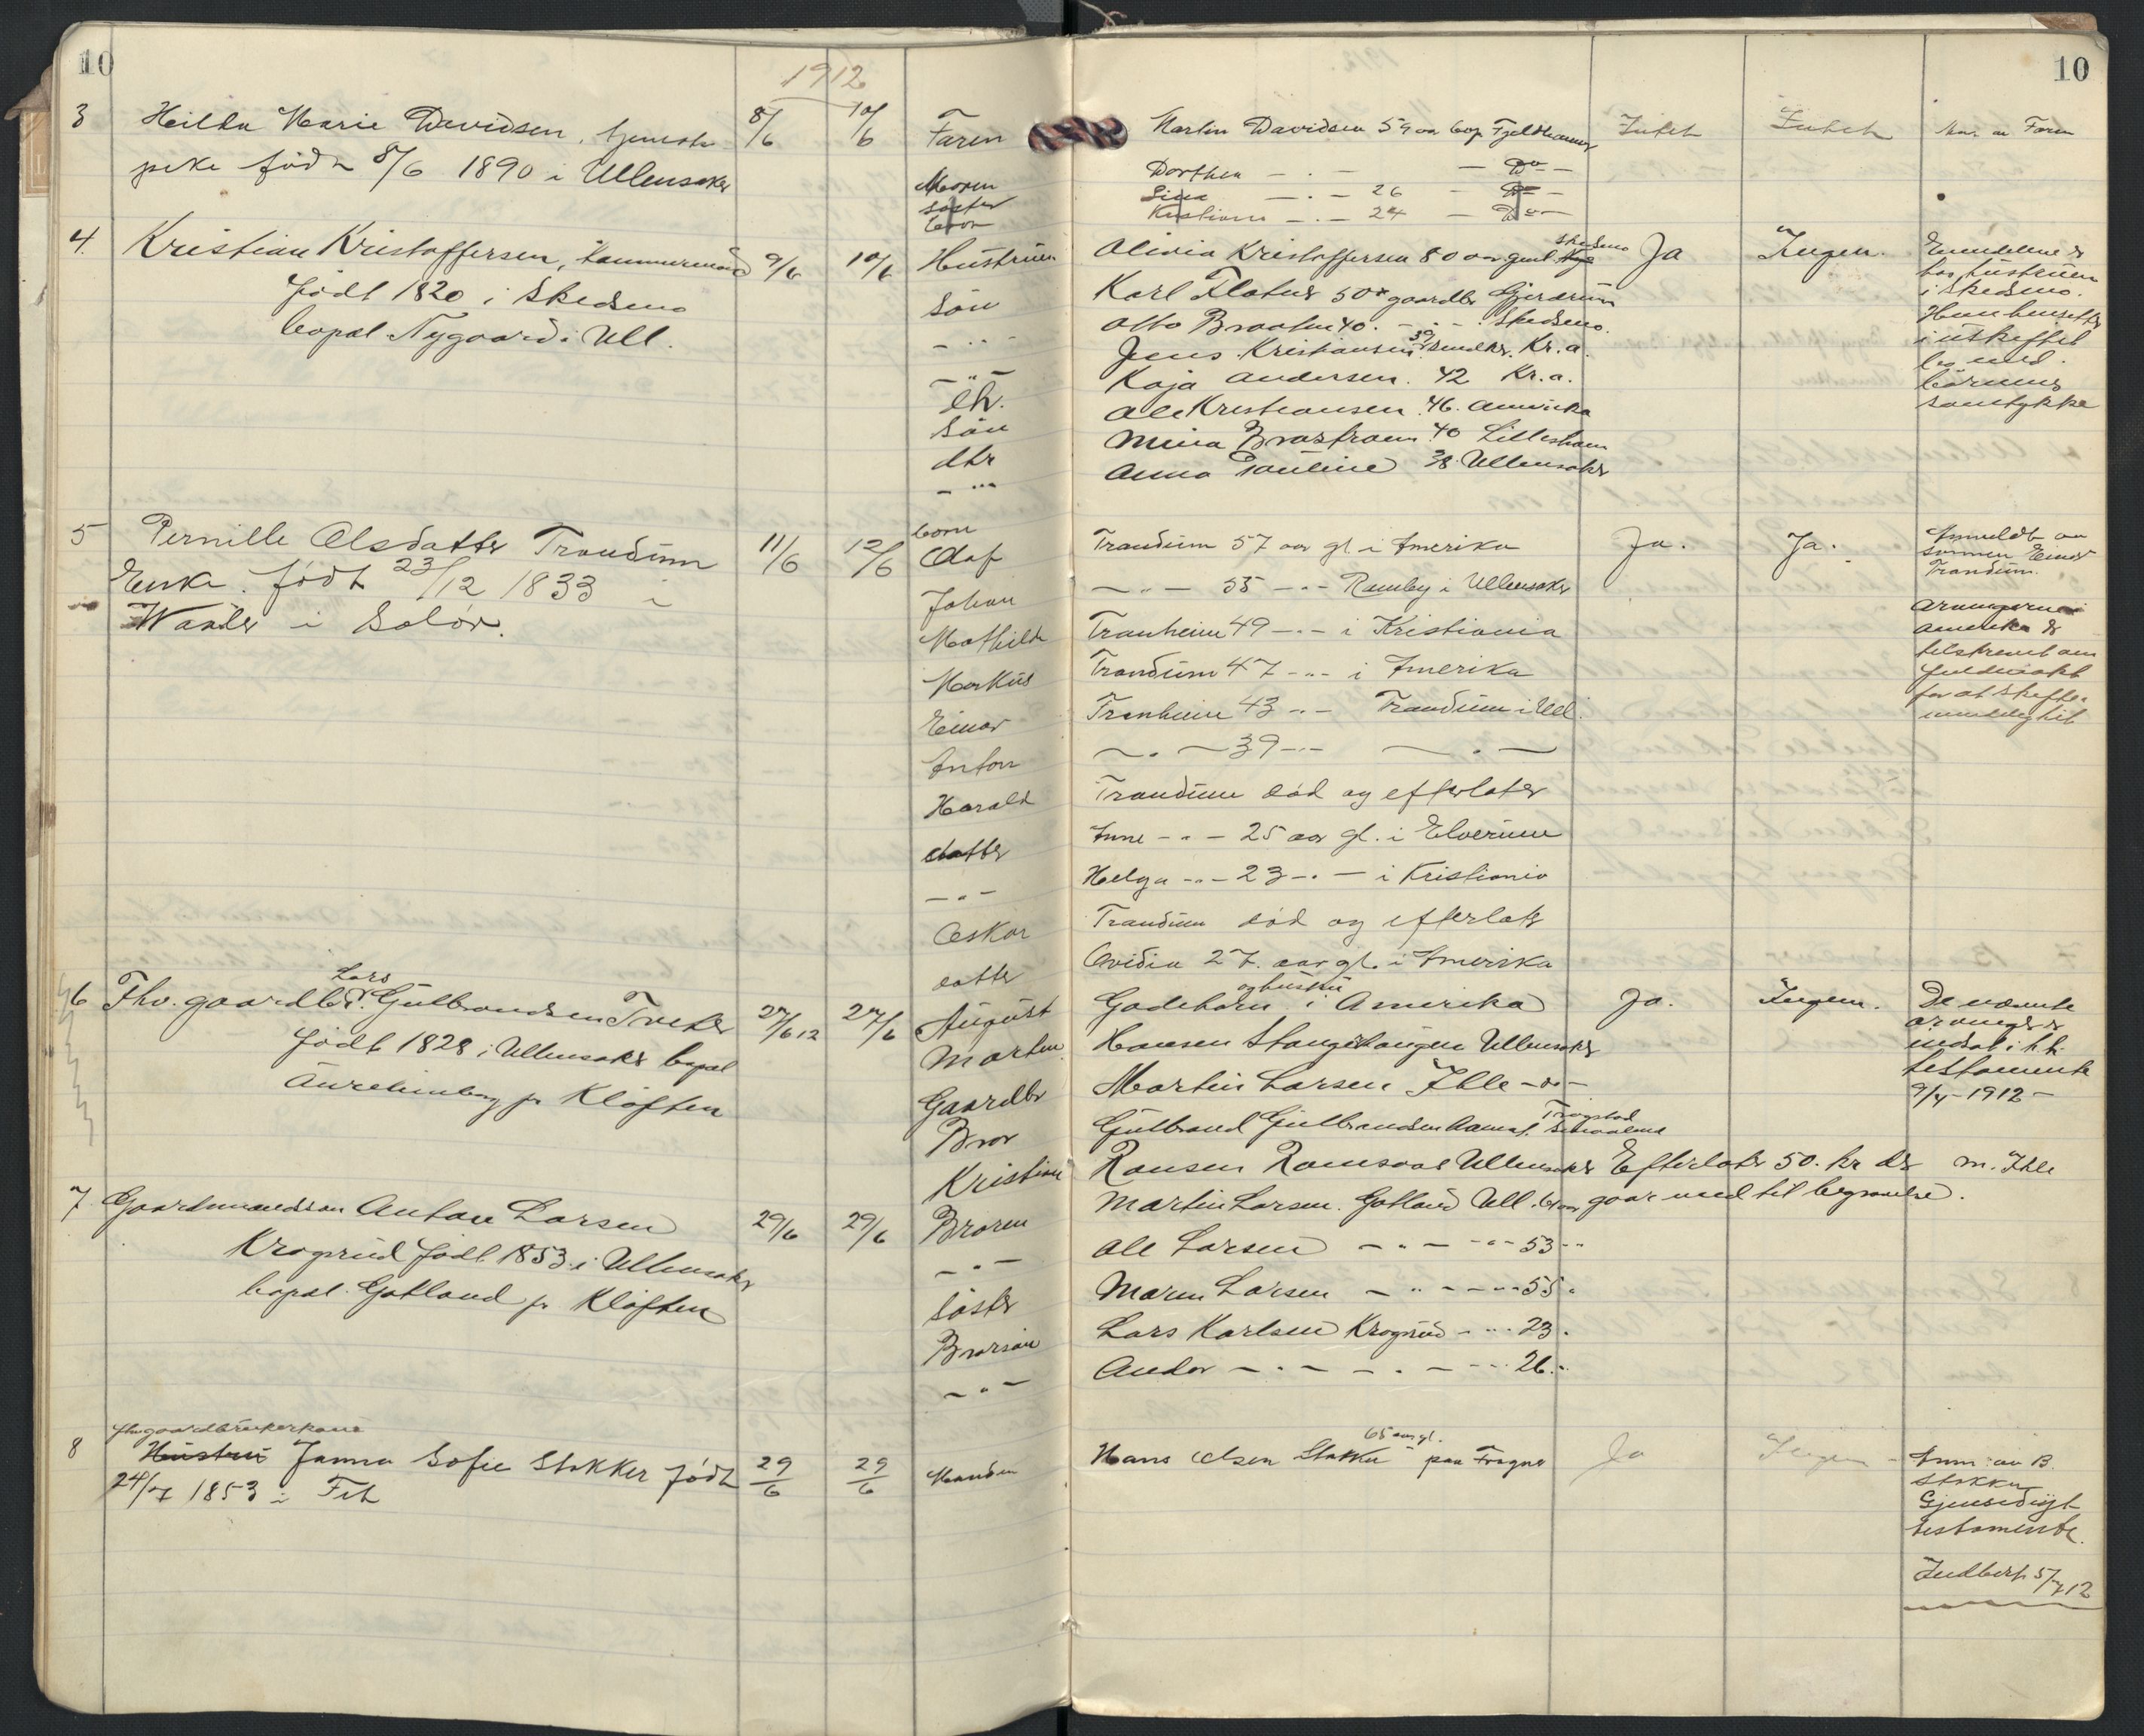 10
1912
10
3 Hilda Marie Davidsen, tjeneste- 8/6 10/6 Faren Martin Davidsen 59 aar bop. Intet Intet Anm. av Faren
pike født 8/6 1890 i Ullensaker
Moren Dorthea — " — Do —
Søster Lina — " — 26 — Do —
Kristiane — " — 24 — Do —
4. Kristian Kristoffersen, tømmermand 9/6 10/6 Hustruen Olivia Kristoffersen 80 aar gml. Skedsmo Ja Ingen.
født 1820 i Skedsmo
bopæl Nygaard i Ull.
Søn Karl Flatner 50 gaardbr Gjerdrum
— " — Otto Braaten 40. — " — Skedsmo.
— " — Jens Kristiansen 39 Kr.a.
dtr. Kaja Andersen. 42 Kr.a.
Søn Ole Kristiansen. 46. Amerika
dtr Mina 40 Lillestrøm
— " — Anna Pauline 38. Ullensaker
hos hustruen
i Skedsmo.
i uskiftet
bo med
barnenes
samtykke
5 Pernille Olsdatter Trandum 11/6 12/6
Enke. født 23/12 1833 i
Waaler i Solør.
barn
Olaf Trandum 57 aar gl. i Amerika Ja. Ja.
Johan — " — 55 — " — Ramby i Ullensaker
Mathilde Tranheim 49 — " — i Kristiania
Markus Trandum 47 — " — i Amerika
Einar Tranheim 43 — " — Trandum i Ull.
Anton — " — 39 — " — — " —
Harald Trandum død og efterlater
datter Anne — " — 25 aar gl. i Elverum
— " — Helga — " — 23 — " — i Kristiania
Oskar Trandum død og efterlater
datter Ovidia 27. aar gl. i Amerika
Anmeldt av
sønnen Einar
Trandum.
Arvingerne i
Amerika er
tilskrevet om
fuldmakt
for at skifte i
mindelighet
6 Fhv. gaardbr. Lars Gulbrandsen Tveter 27/6 12 27/6 August Godeborn og hustru i Amerika Ja. Ingen.
født 1828 i Ullensaker bopæl
pr Kløften
Marten Hansen Stangerhaugen Ullensaker
Gaardbr Martin Larsen Ihle — " —
Bror Gulbrand Gulbrandsen Trøgstad
Kristian Hansen Ramsaas Ullensaker Efterlater 50. kr der M. Ihle
De nævnte
arvinger er
indsat i h.h.
testamente
9/4 - 1912 -
7 Gaardmandssøn Anton Larsen 29/6 29/6 Broren Martin Larsen. Gotland Ull. gaar med til begravelse.
Krogsrud født 1853 i Ullensaker
bopæl Gotland pr Kløften
— " — Ole Larsen — " — — " — 53 — " —
Søster Maren Larsen — " — — " — 55 "
Brorsøn Lars Karlsen Krogsrud — " — 23.
— " — Andor — " — — " — 26. "
8 fhv. gaardbrukerkone
Hustru Janna Sofie Stokker født 29/6 29/6 Manden Hans Olsen Stokker 65 aar gl. paa Frogner Ja Ingen
24/7 1853 i Fet
Anm. av B.
Stokker
Gjensidigt
testamente.
Indbert. 5/7 12